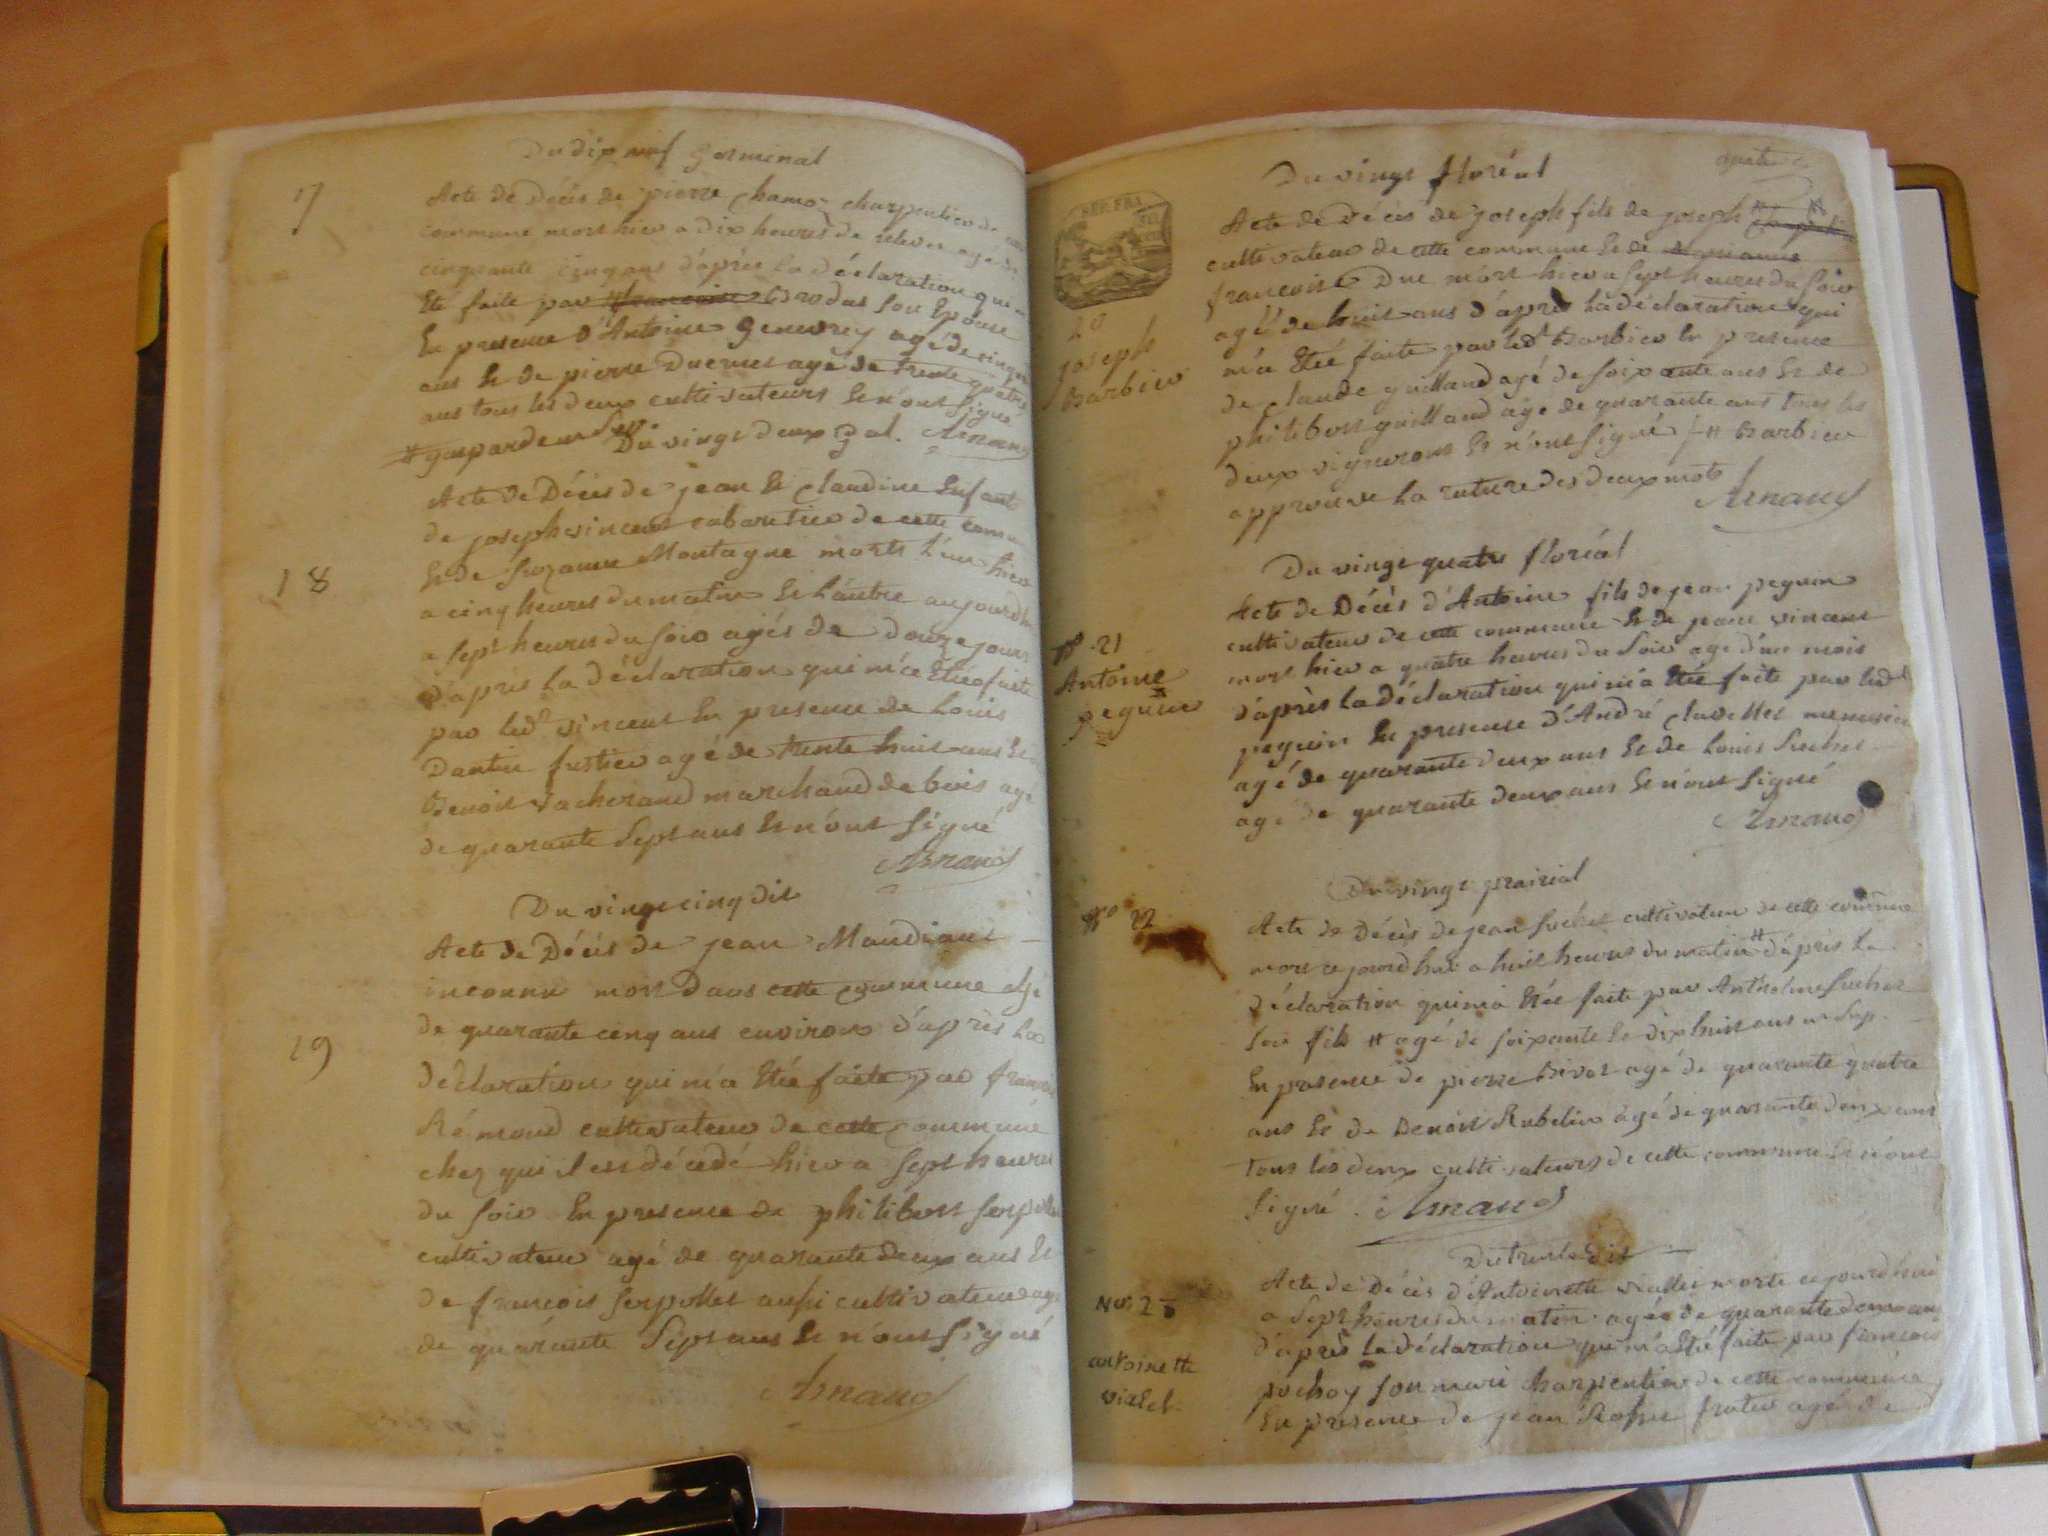 Du dix neuf Germinal
17
Acte de Décés de pierre Chamo charpentier de
commune mort hier a dix heures de relever agé de
cinquante cinq ans d'après la déclaration qui
Eté faite par son Epouse
En presence d'Antoine Genevrey agé de
ans Et de pierre Ducruet agé de trente quatre
ans tous les deux cultivateurs Et n'ont signé
Du vingt deux gal. Arnaud
18
Acte de Décés de jean Et Claudine Enfants
de joseph vincent cabaretier de cette comm
Et de Suzanne Montagne morts l'un hier
a cinq heures du matin Et l'autre aujourd'h
a Sept heures du Soir agés de douze jours
d'après la déclaration qui m'a Etée faite
par led.t vincent En presence de Louis
Dantin fustier agé de trente huit ans Et
Benoit Vacherand marchand de bois agé
de quarante Sept ans Et n'ont Signé
Arnaud
Du vingt cinq dit
Acte de Décés de jean Maudiant
19
inconnu mort dans cette commune age
de quarante cinq ans environ d'après la
déclaration qui m'a Etée faite par françois
Rémond cultivateur de cette commune
chez qui il est décédé hier a Sept heures
du Soir En presence de philibert Serpollet
cultivateur agé de quarante deux ans Et
de françois Serpollet aussi cultivateur agé
de quarante Sept ans Et n'ont Signé
Arnaud
Du vingt floréal
REP. FRA.
Acte de Décés de joseph fils de joseph
cultivateur de cette commune Et de
françoise Duc mort hier a Sept heures du Soir
20
joseph
Barbier
agé de huit ans d'après la déclaration qui
m'a Etée faite par led.t Barbier En presence
de Claude guilland agé de soixante ans Et de
philibert guilland agé de quarante ans tous les
deux vignerons Et n'ont Signé # Barbier
approuve la rature des deux mots
Arnaud
Du vingt quatre floréal
N° 21
Antoine
peguin
Acte de Décès d'Antoine fils de jean peguin
cultivateur de cette commune Et de jeane vincent
mort hier a quatre heures du Soir agé d'un mois
d'après la déclaration qui m'a Etée faite par led.t
peguin En presence d'André Clavellet menuisier
agé de quarante deux ans Et de Louis Suchet
agé de quarante deux ans Et n'ont Signé
Arnaud
Du vingt prairial
N° 22
Acte de Décès de jean Suchet cultivateur de cette commune
mort cejourdhui a huit heures du matin # d'après la
déclaration qui m'a Etée faite par Anthelme Suchet
Son fils # agé de soixante Et dix huit ans
En presence de pierre Bivet agé de quarante quatre
ans Et de Benoit Rubelin agé de quarante deux ans
tous les deux cultivateurs de cette commune Et n'ont
Signé. Arnaud
Du trente dit
N° 23
antoinette
vialet
Acte de Décès d'Antoinette viallet morte cejourdhui
a Sept heures du matin agée de quarante deux ans
d'après la déclaration qui m'a Eté faite par françois
pochoy Son mari charpentier de cette commune
En presence de jean frater agé de